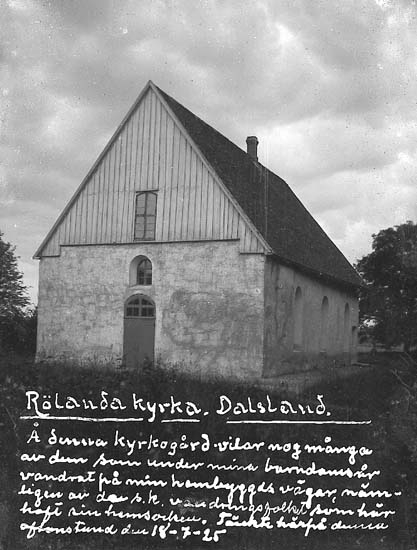 Rölanda kyrka. Dalsland.
Å denna kyrkogård vilar nog många
av dem som under mina barndomsår
vandrat på min hembygds vägar, näm-
ligen av de s.k. vandringsfolket som här
haft sin hemsocken. Tänkte härpå denna
aftonstund den 18-7-25